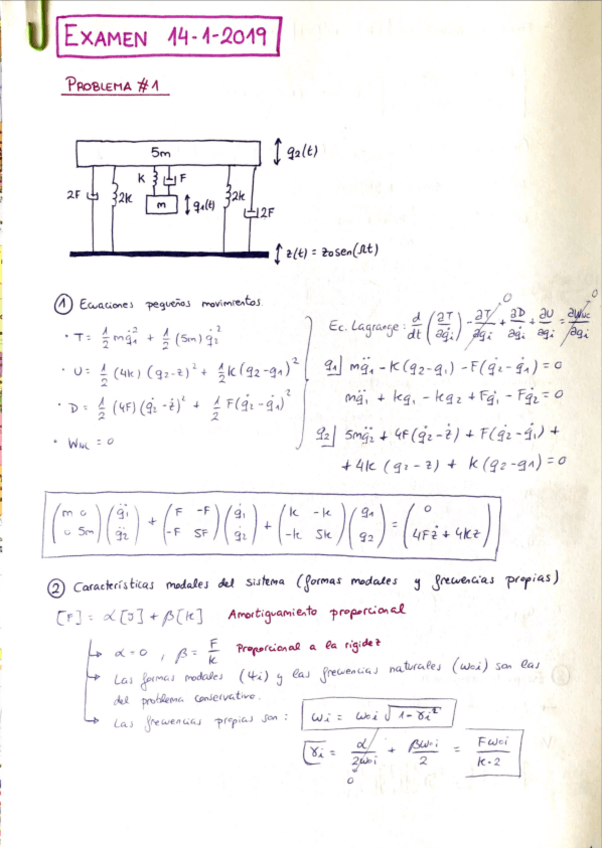 EXAMEN 14-1-2019
PROBLEMA #1
5m
q2(t)
K
F
2F
2k
m
q1(t)
2k
2F
z(t) = z0 sen(Ωt)
① Ecuaciones pequeños movimientos.
· T = 1/2 m q̇1² + 1/2 (5m) q̇2²
· U = 1/2 (4k) (q2-z)² + 1/2 k (q2-q1)²
· D = 1/2 (4F) (q̇2-ż)² + 1/2 F (q̇2-q̇1)²
· Wuc = 0
Ec. Lagrange: d/dt (∂T/∂q̇i) - ∂T/∂qi + ∂D/∂q̇i + ∂U/∂qi = ∂Wuc/∂qi
0
0
q1| mq̈1 - K(q2-q1) - F(q̇2-q̇1) = 0
mq̈1 + kq1 - kq2 + Fq̇1 - Fq̇2 = 0
q2| 5mq̈2 + 4F(q̇2-ż) + F(q̇2-q̇1) +
+ 4K (q2-z) + k (q2-q1) = 0
(m 0 / 0 5m) (q̈1 / q̈2) + (F -F / -F 5F) (q̇1 / q̇2) + (k -k / -k 5k) (q1 / q2) = (0 / 4Fż + 4kz)
② Características modales del sistema (formas modales y frecuencias propias)
[F] = α[J] + β[K] Amortiguamiento proporcional
↳ α=0, β = F/k Proporcional a la rigidez
↳ Las formas modales (Ψi) y las frecuencias naturales (ωoi) son las
del problema conservativo.
↳ Las frecuencias propias son: ωi = ωoi √(1-γi²)
γi = α/2ωoi + βωoi/2 = Fωoi/k·2
0